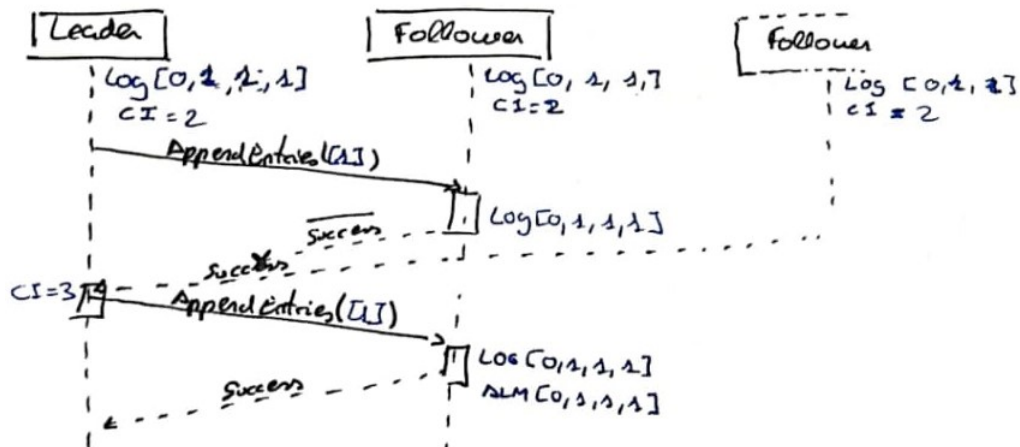 Leader
Follower
Follower
Log [0, 1, 1, 1]
CI = 2
Log [0, 1, 1,]
CI = 2
Log [0, 1, 1]
CI = 2
AppendEntries([1])
Log [0, 1, 1, 1]
Success
Success
CI = 3
AppendEntries([1])
Log [0, 1, 1, 1]
Success